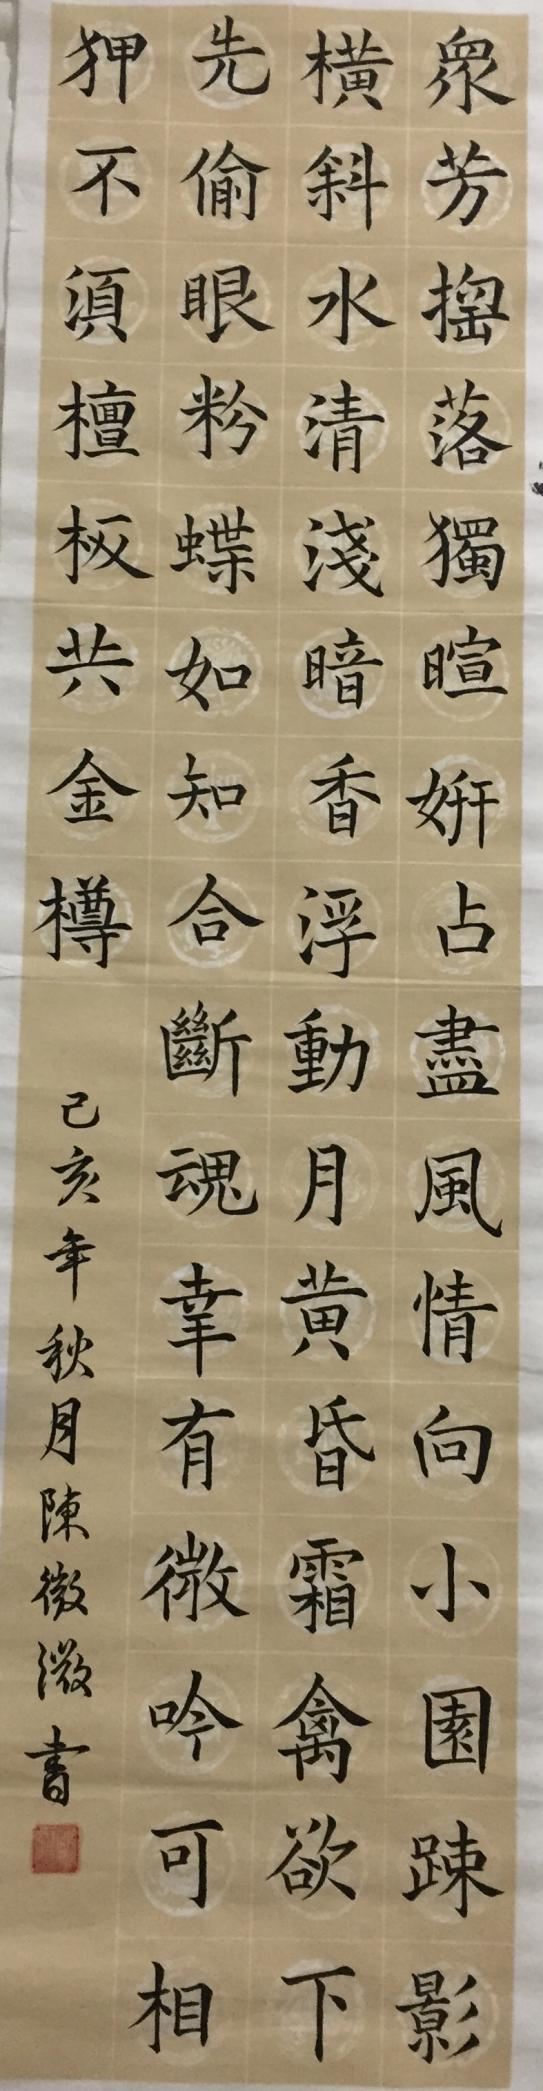 眾芳搖落獨暄妍占盡風情向小園踈影
橫斜水清淺暗香浮動月黃昏霜禽欲下
先偷眼粉蝶如知合斷魂幸有微吟可相
狎不須檀板共金樽
己亥年秋月陳微溦書